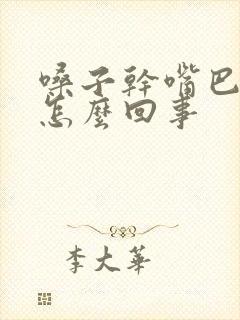 嗓子幹嘴巴
怎麼回事
李大華